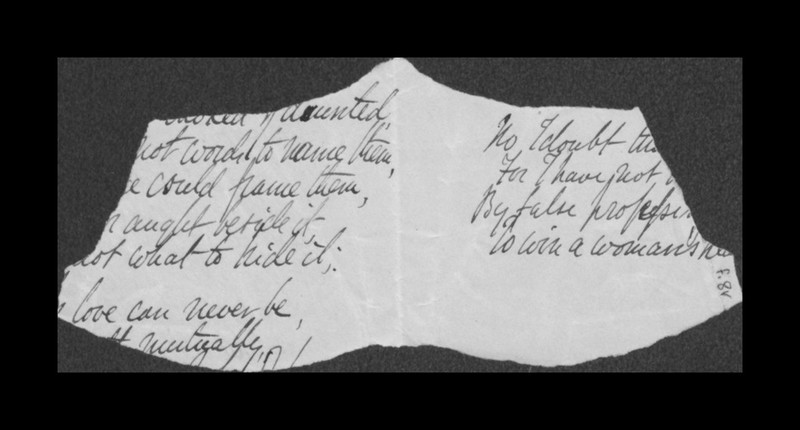 daunted,
not words to name them,
could frame them,
aught beside it,
not what to hide it;
love can never be,
mutually
No, I doubt
For I have not
By false
to win a woman's
f.8v